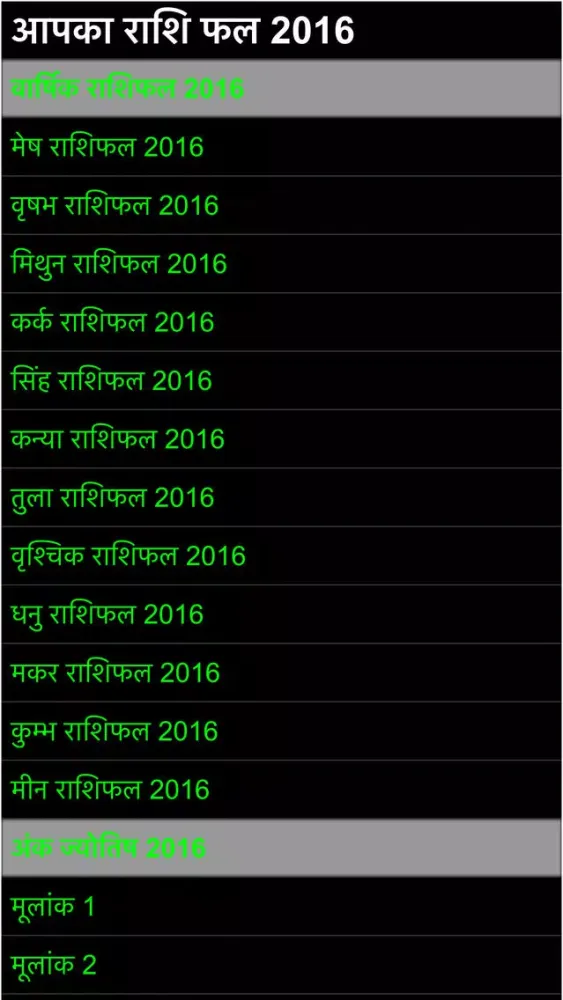 आपका राशि फल 2016
वार्षिक राशिफल 2016
मेष राशिफल 2016
वृषभ राशिफल 2016
मिथुन राशिफल 2016
कर्क राशिफल 2016
सिंह राशिफल 2016
कन्या राशिफल 2016
तुला राशिफल 2016
वृश्चिक राशिफल 2016
धनु राशिफल 2016
मकर राशिफल 2016
कुम्भ राशिफल 2016
मीन राशिफल 2016
अंक ज्योतिष 2016
मूलांक 1
मूलांक 2